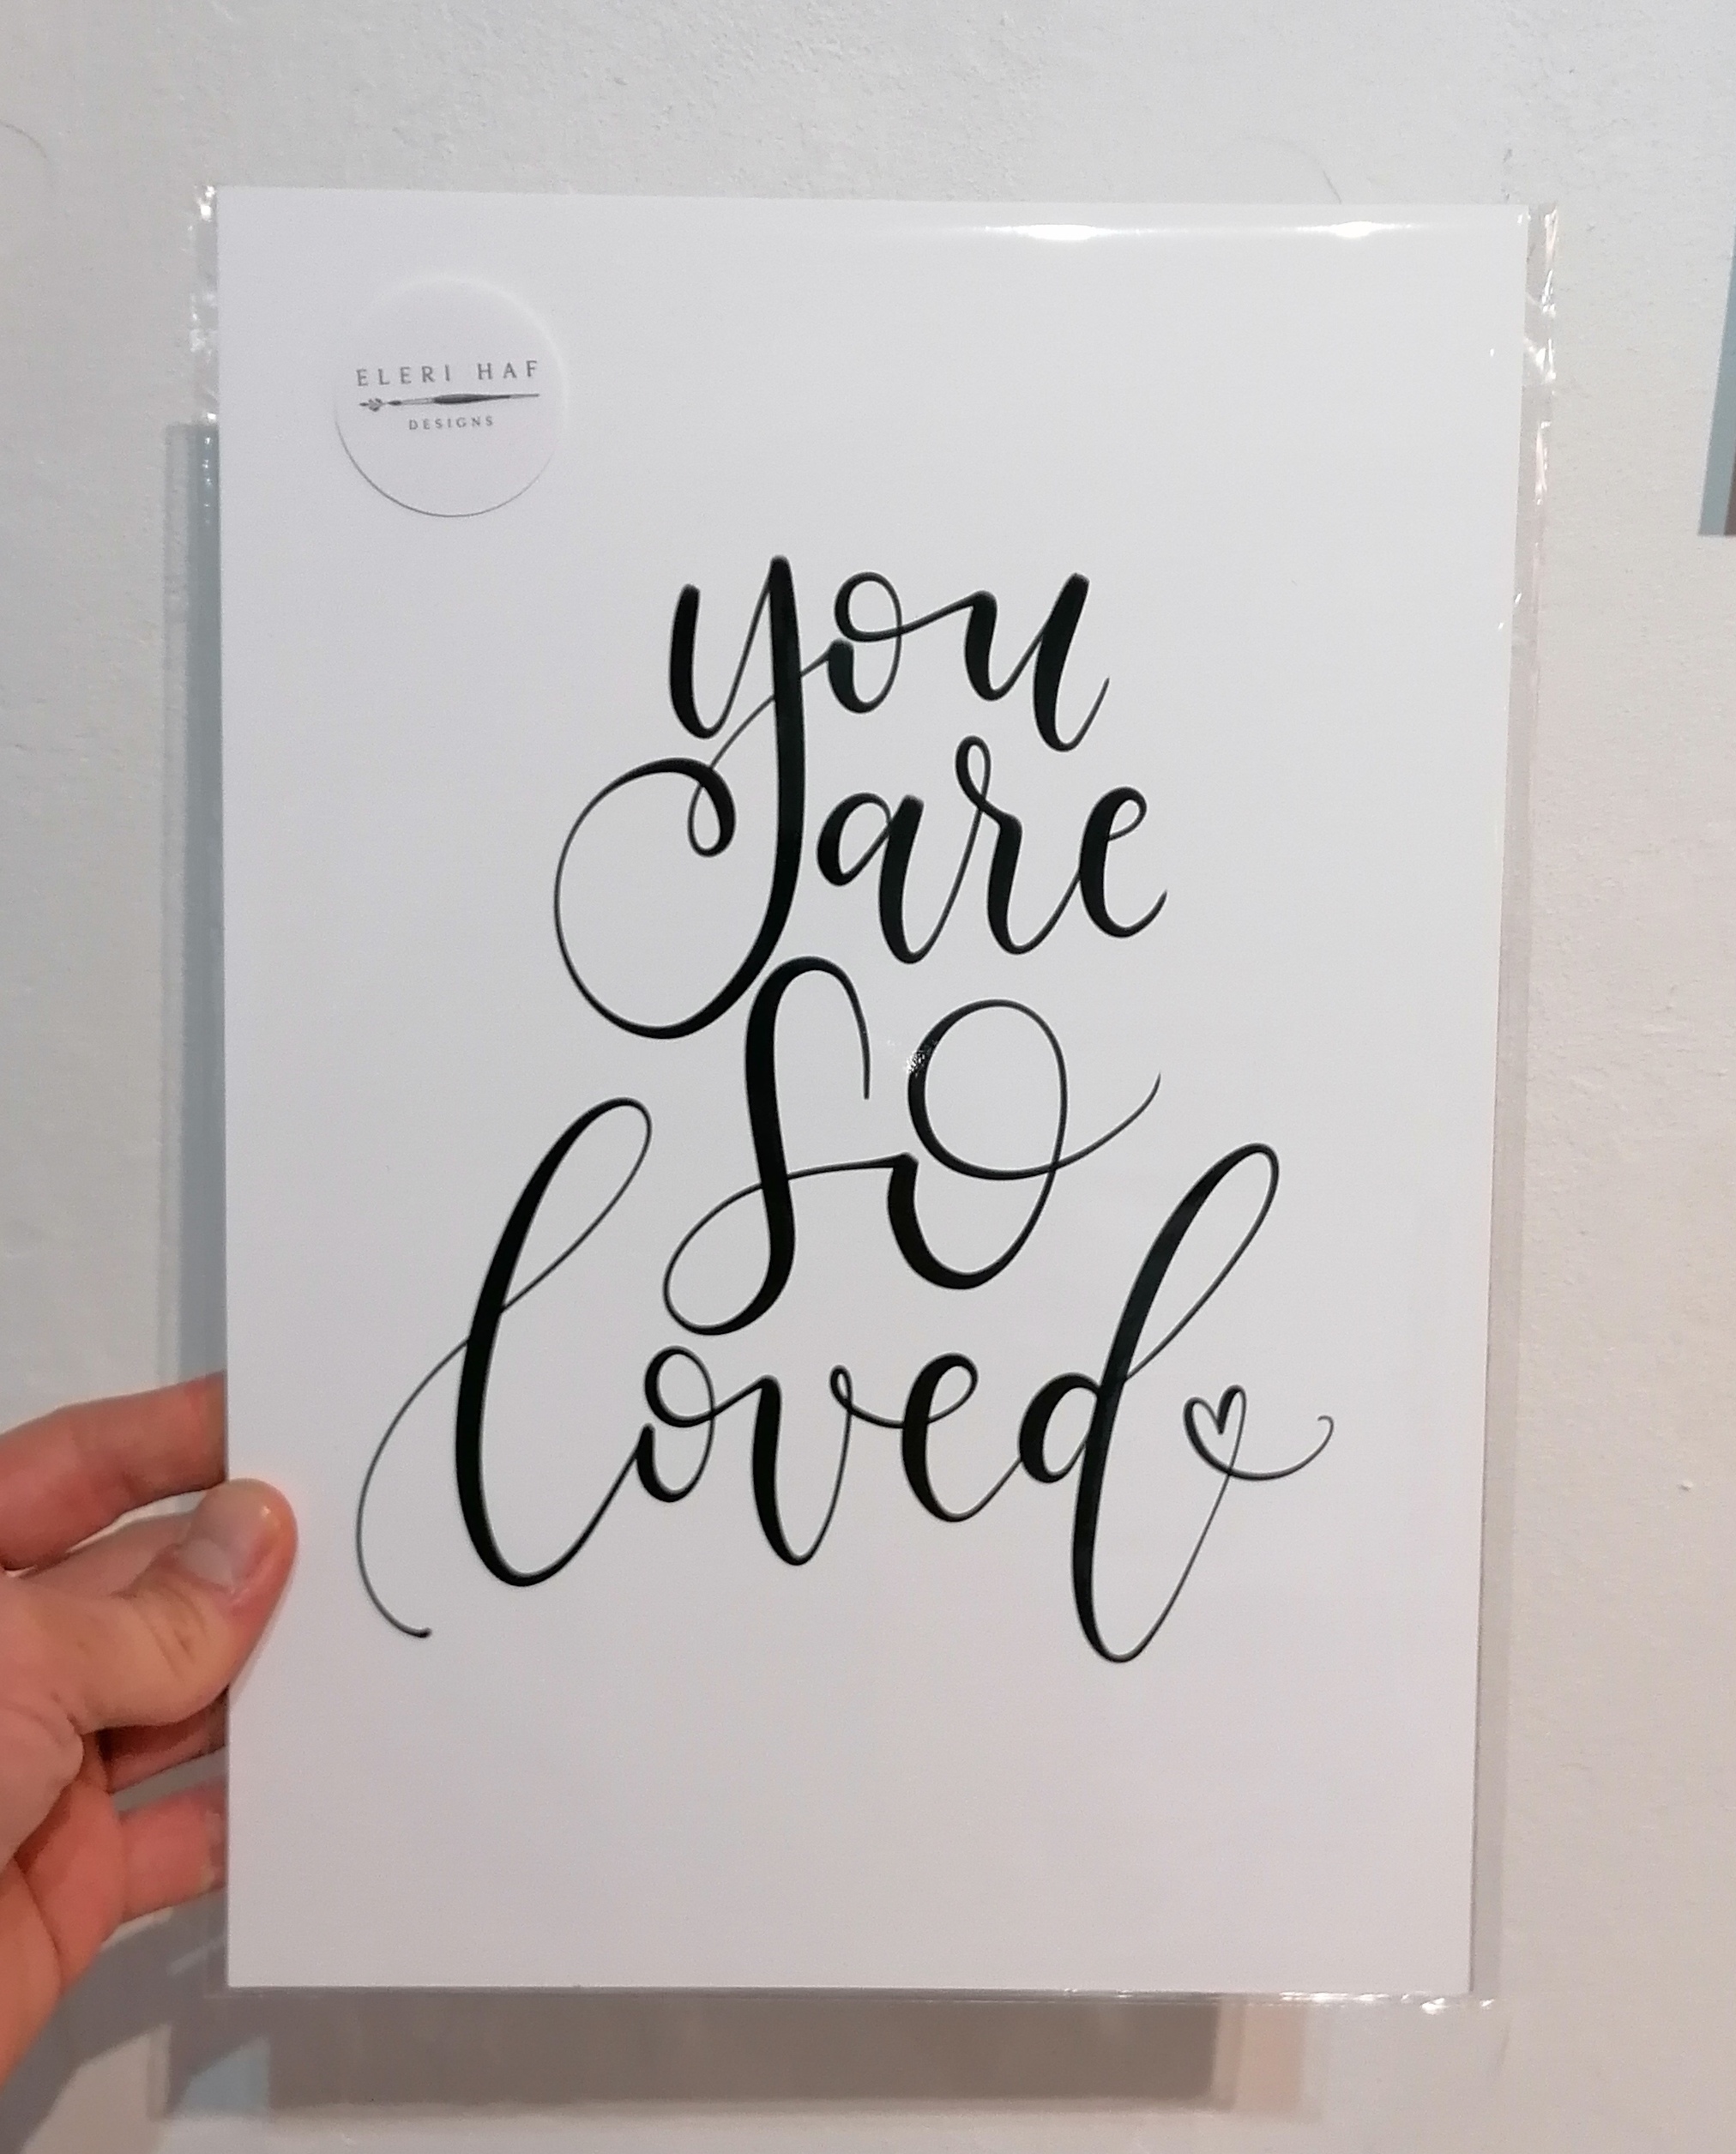 ELERI HAF
DESIGNS
you
are
so
loved